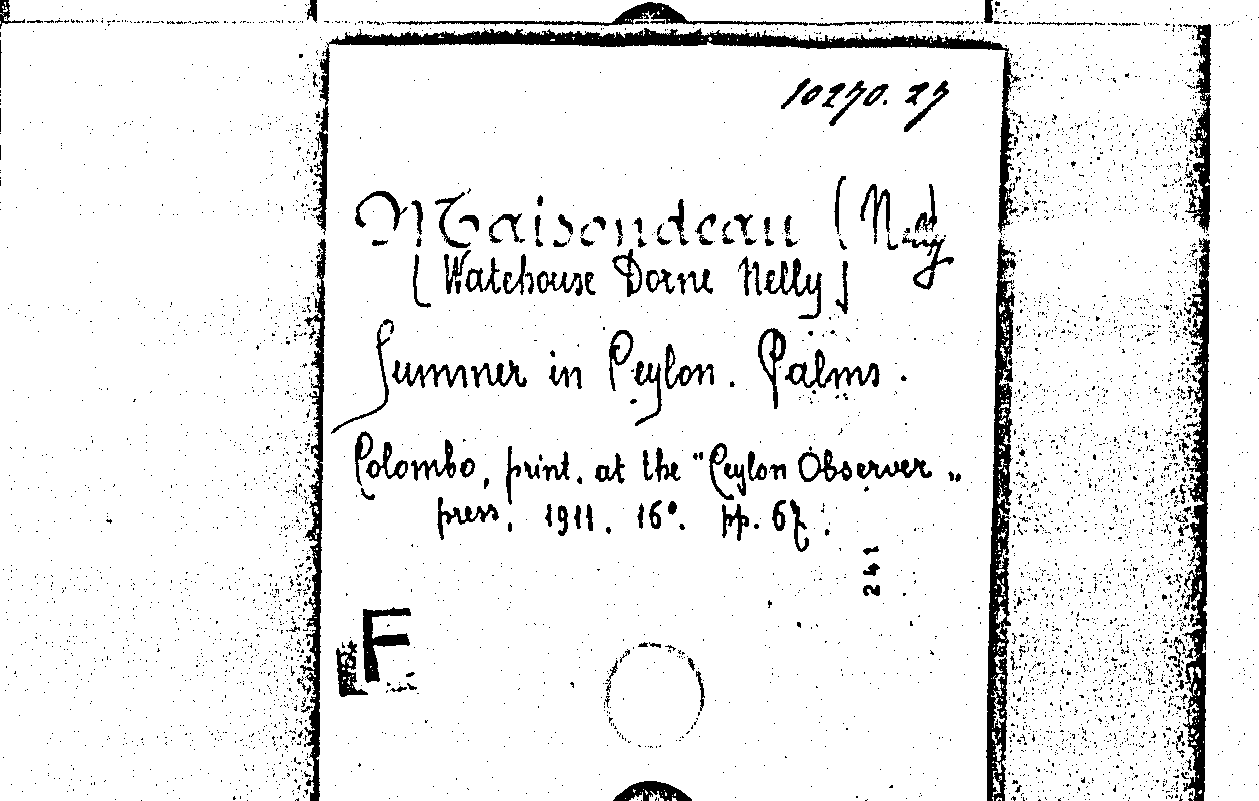 10270. 27
Maisondeau (Nelly)
[Watehouse Dorne Nelly]
Summer in Ceylon. Palms.
Colombo, print. at the "Ceylon Observer„
press. 1911. 16°. pp. 67.
241
F